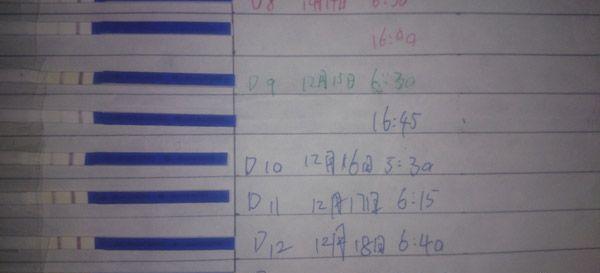 D8 12月14日 6:30
16:00
D9 12月15日 6:30
16:45
D10 12月16日 5:30
D11 12月17日 6:15
D12 12月18日 6:40